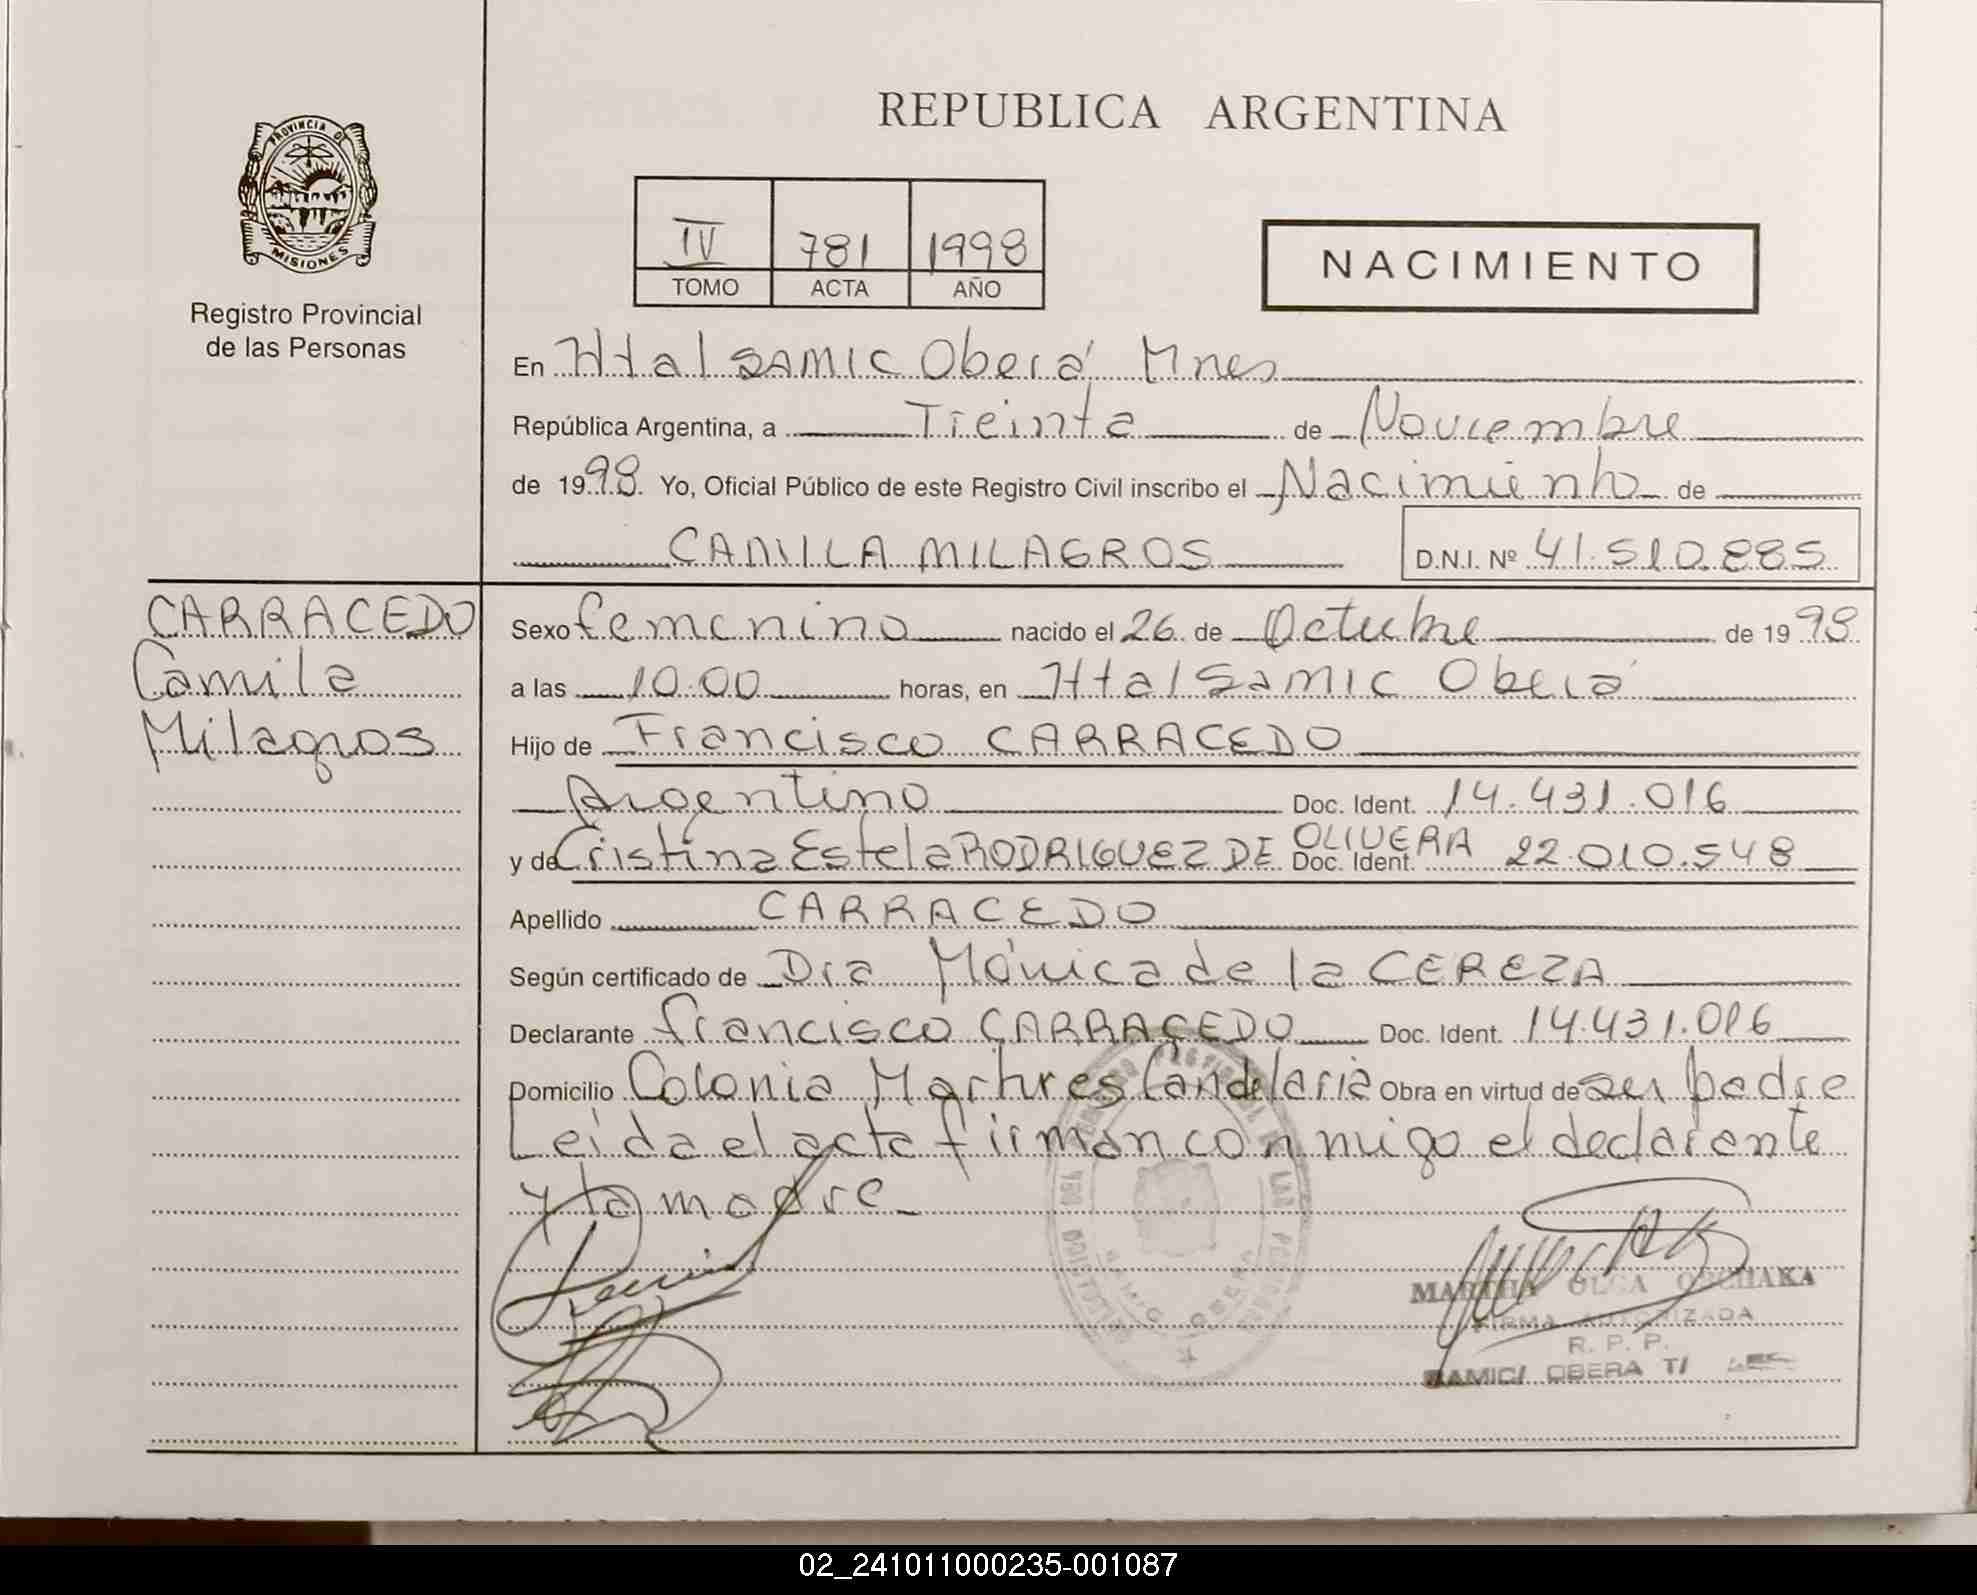 REPUBLICA ARGENTINA
PROVINCIA DE
MISIONES
Registro Provincial
de las Personas
IV 781 1998
TOMO ACTA AÑO
NACIMIENTO
En Htal SAMIC Oberá Mnes
República Argentina, a Treinta de Noviembre
de 1998. Yo, Oficial Público de este Registro Civil inscribo el Nacimiento de
CAMILA MILAGROS D.N.I. Nº 41.510.885
CARRACEDO
Camila
Milagros
Sexo femenino nacido el 26 de Octubre de 1998
a las 10.00 horas, en Htal Samic Oberá
Hijo de Francisco CARRACEDO
Argentino Doc. Ident. 14.431.016
y de Cristina Estela RODRIGUEZ DE OLIVERA Doc. Ident. 22.010.548
Apellido CARRACEDO
Según certificado de Dra Mónica de la CEREZA
Declarante Francisco CARRACEDO Doc. Ident. 14.431.016
Domicilio Colonia Martires Candelaria Obra en virtud de ser padre
Leída el acta firman conmigo el declarante
y la madre
MARTHA OLGA
FIRMA AUTORIZADA
R. P. P.
SAMIC/ OBERA
02_241011000235-001087